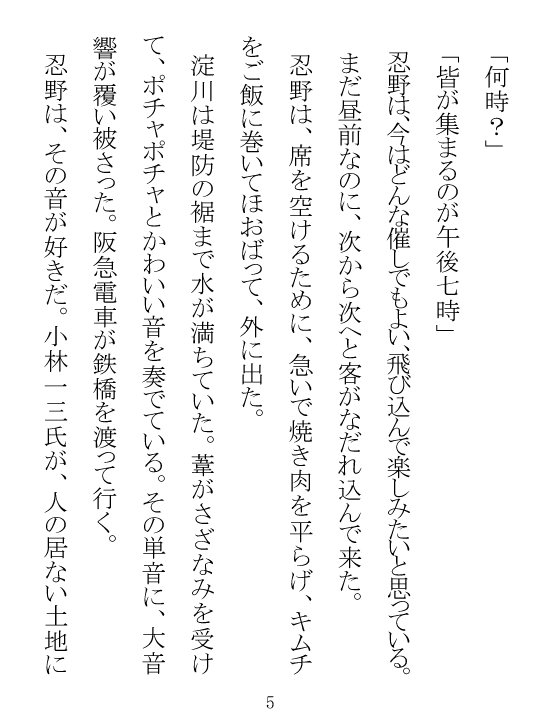 「何時？」
「皆が集まるのが午後七時」
忍野は、今はどんな催しでもよい、飛び込んで楽しみたいと思っている。
まだ昼前なのに、次から次へと客がなだれ込んで来た。
忍野は、席を空けるために、急いで焼き肉を平らげ、キムチ
をご飯に巻いてほおばって、外に出た。
淀川は堤防の裾まで水が満ちていた。葦がさざなみを受け
て、ポチャポチャとかわいい音を奏でている。その単音に、大音
響が覆い被さった。阪急電車が鉄橋を渡って行く。
忍野は、その音が好きだ。小林一三氏が、人の居ない土地に
5